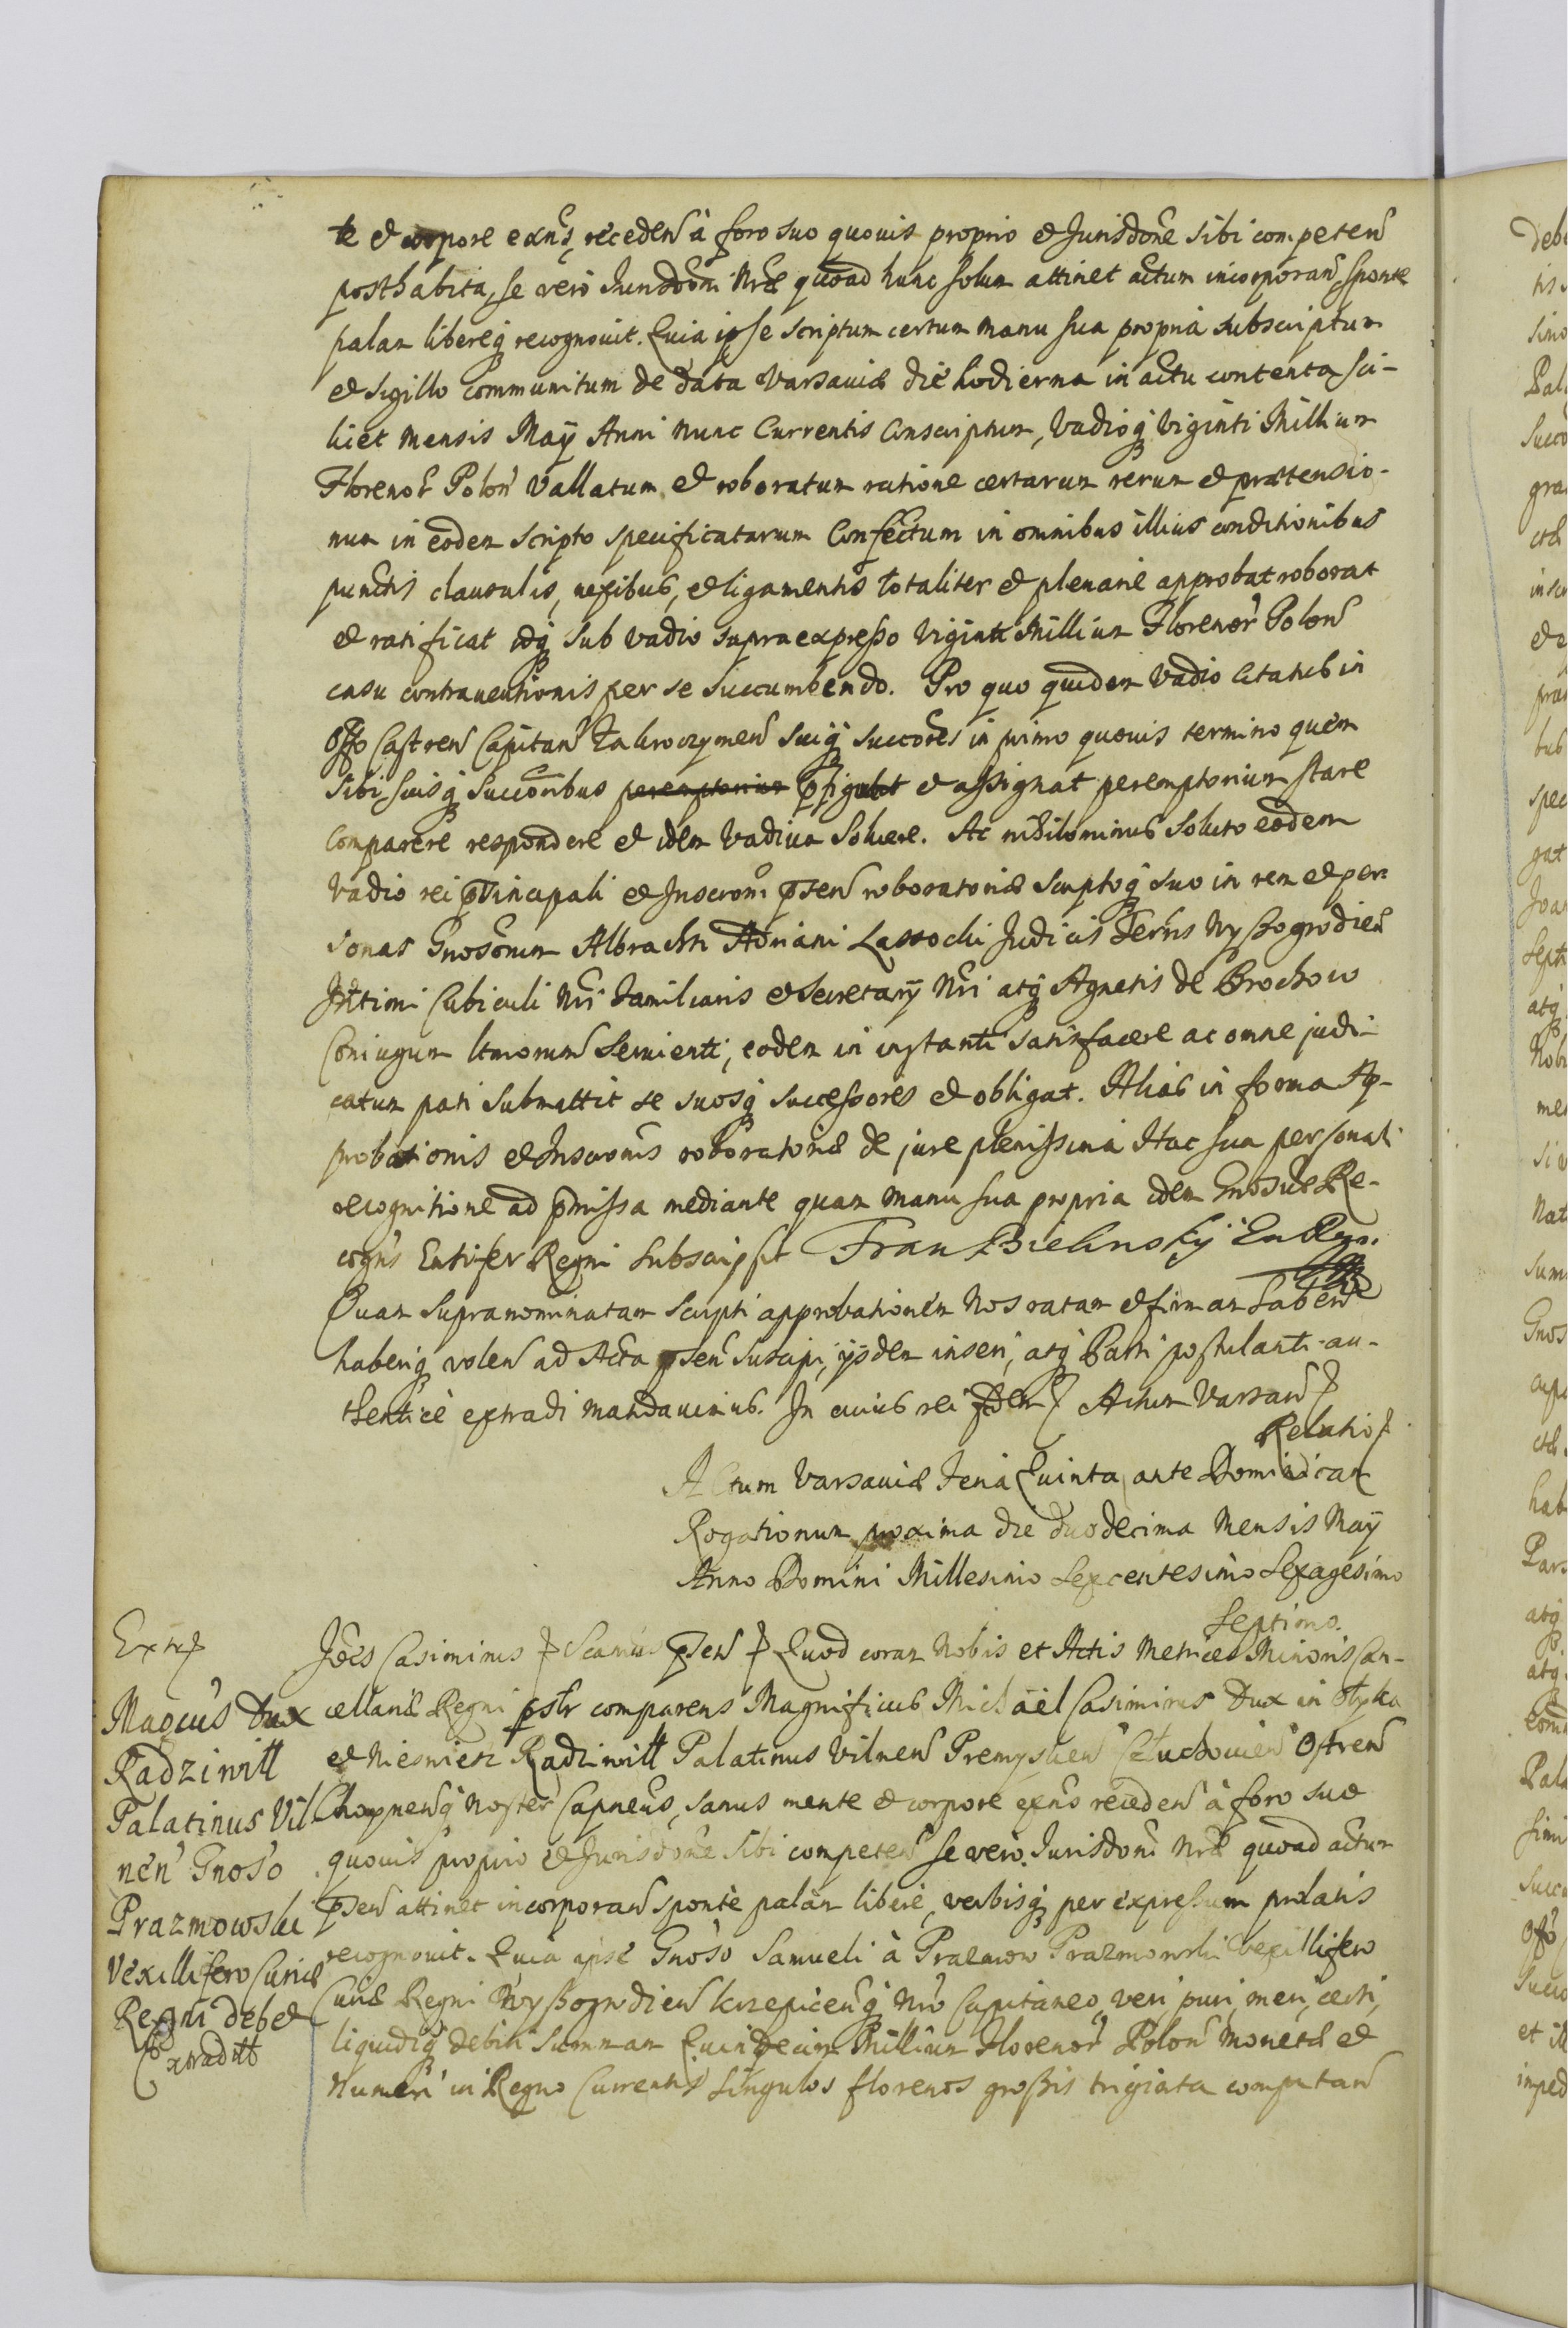 te et corpore exñs, receden̄ à foro suo quovis proprio et Jurisdōne sibi competen̄
posthabita, se vero Jurisdōni Nræ quoad hunc solum attinet actum incorporan̄, sponte
palam libereq recognovit. Quia ipse scriptum certum manu sua propria subscriptum
et sigillo communitum de data Varsaviæ die hodierna in actu contenta sci-
licet mensis Maÿ Anni nunc Currentis Conscriptum, Vadioq Viginti Millium
Florenor Polon̄ Vallatum et roboratum ratione certarum rerum et prætensio-
num in eodem scripto specificatarum Confectum in omnibus illius conditionibus
punctis clausulis, nexibus, et ligamentis totaliter et plenarie approbat roborat
et ratificat idq sub vadio supra expresso Viginti Millium Florenor Polon̄
casu contraventionis per se succumbendo. Pro quo quidem Vadio Citatus in
Offo Castren̄ Capitan̄ Zakroczymen̄ suiq succōres in primo quovis termino quem
sibi suisq Succōribus peremptorium p̄figit et assignat peremptorium stare
comparere respondere et idem Vadium solvere. Ac nihilominus soluto eodem
Vadio rei p̄rincipali et Inscrōni p̄sen̄ roboratoriæ Scriptoq suo in rem et per-
sonas Gnosorum Albrachti Adriani Lassocki Judicis Terrris Wyssogrodien̄
Intimi Cubiculi Nri Familiaris et Secretarÿ Nri atq Agnetis de Brochow
Coniugum ltmorum servienti, eodem in instanti satisfacere ac omne judi-
catum pati submittit se suosq successores et obligat. Alias in forma Ap-
probationis et Inscrōnis roboratoriæ de jure plenissima Hac sua personali
recognitione ad p̄missa mediante quam manu sua propria idem Gnosus Re-
cogñs Ensifer Regni subscripsit Fran Bielinsky En Regni
Quam supranominatam scripti approbationem Nos ratam et firmam haben̄
haberiq volen̄ ad Acta p̄sen̄ suscipi, ÿsdem inseri, atq Parti postulanti au-
thentice extradi mandavimus. In cuius rei fidem Actum Varsav̄
Relatio
Actum Varsaviæ Feria Quinta ante Dominicam
Rogationum proxima die duodecima Mensis Maÿ
Anno Domini Millesimo Sexcentesimo Sexagesimo
Septimo.
Joēs Casimirus Scamus p̄sen̄ Quod coram Nobis et Actis Metrices Minoris Can-
cellariæ Regni p̄str comparens Magnificus Michael Casimirus Dux in Olyka
et Niesviesz Radziwitt Palatinus Vilnen̄ Premyslien̄ Człuchovien̄ Ostren̄
Choynen̄q Noster Capneus, sanus mente et corpore exñs receden̄ à foro suo
quovis proprio et Jurisdōne sibi competen̄ se vero Jurisdōni Nræ quoad actum
p̄sen̄ attinet incorporan̄ sponte palam libere, verbisq per expressum prolatis
recognovit. Quia ipse Gnoso Samueli à Prazmow Prazmowski Vexillifero
Curiæ Regni Wyssogrodien̄ Krzepicen̄q Nro Capitaneo, veri puri, meri, certi,
liquidiq debiti summam Quindecim Millium Florenor Polon̄ monetæ et
Numeri in Regno Currentis singulos florenos grossis triginta computan̄
Extr
Magcus Dux
Radziwitt
Palatinus Vil
nen̄ Gnoso
Prazmowski
Vexillifero Curiæ
Regni debet
Extradtt